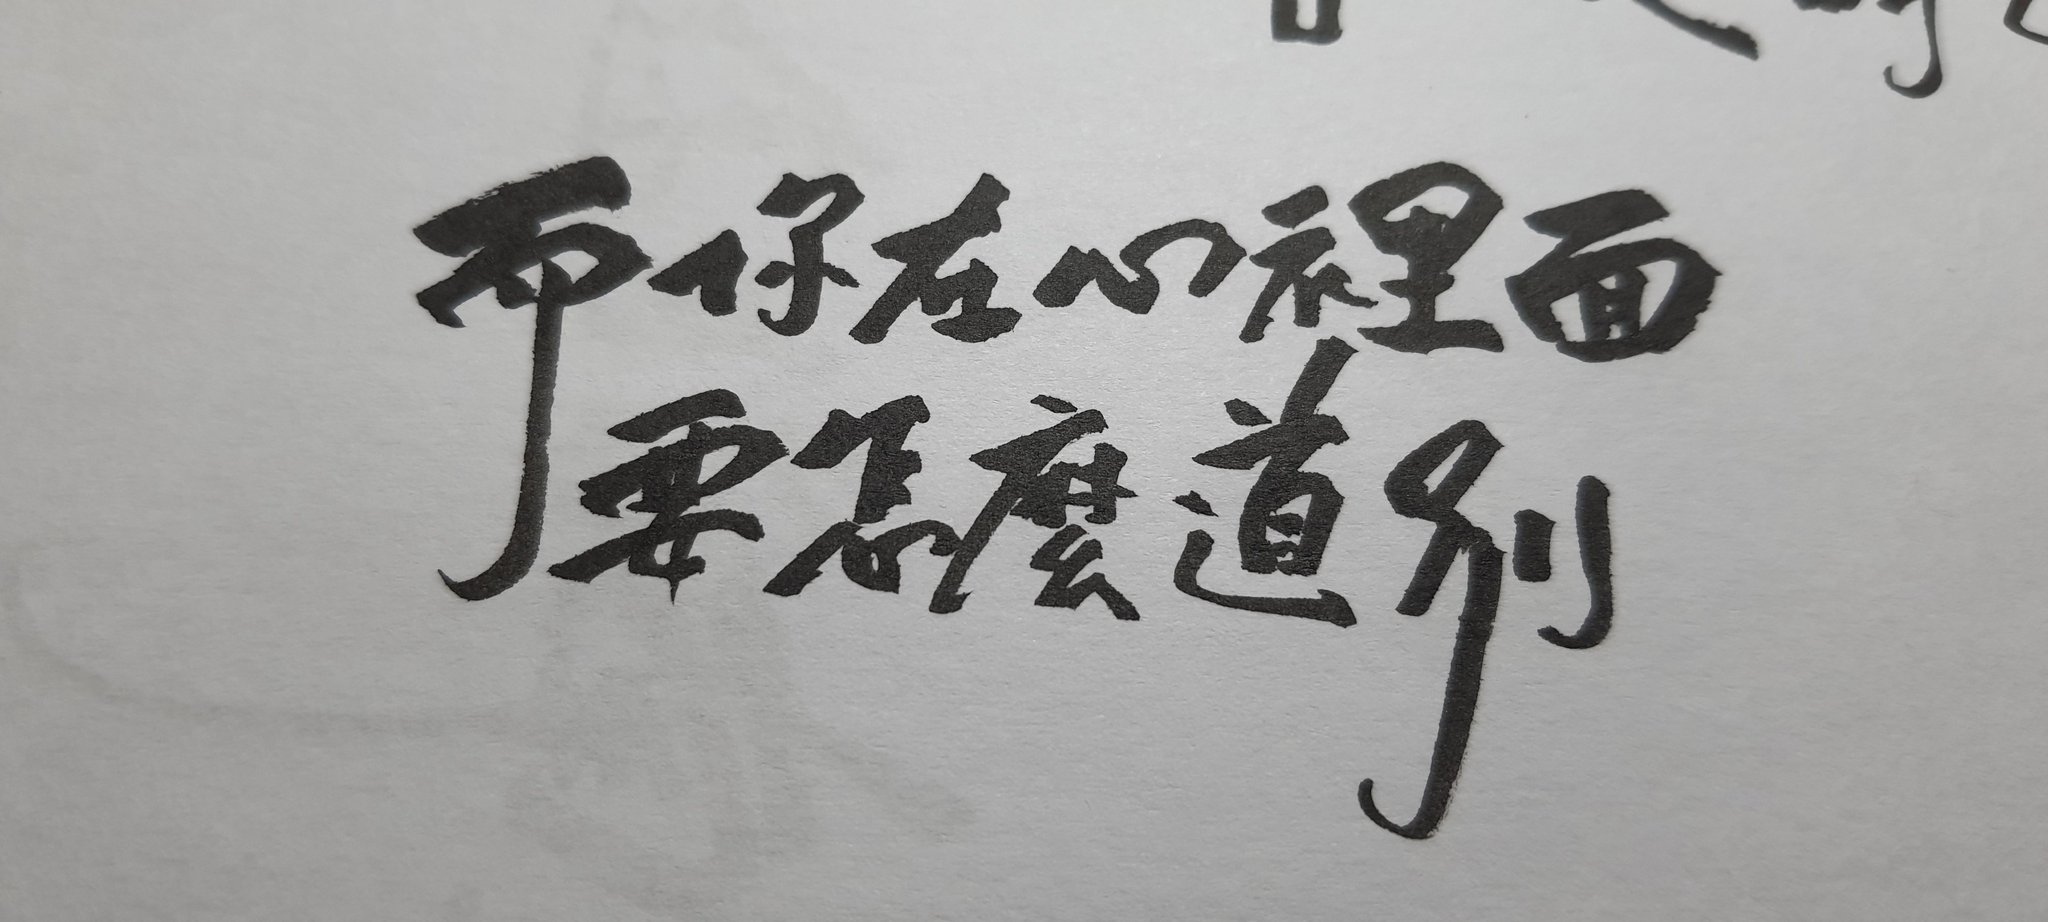 而你在心裡面
要怎麼道別